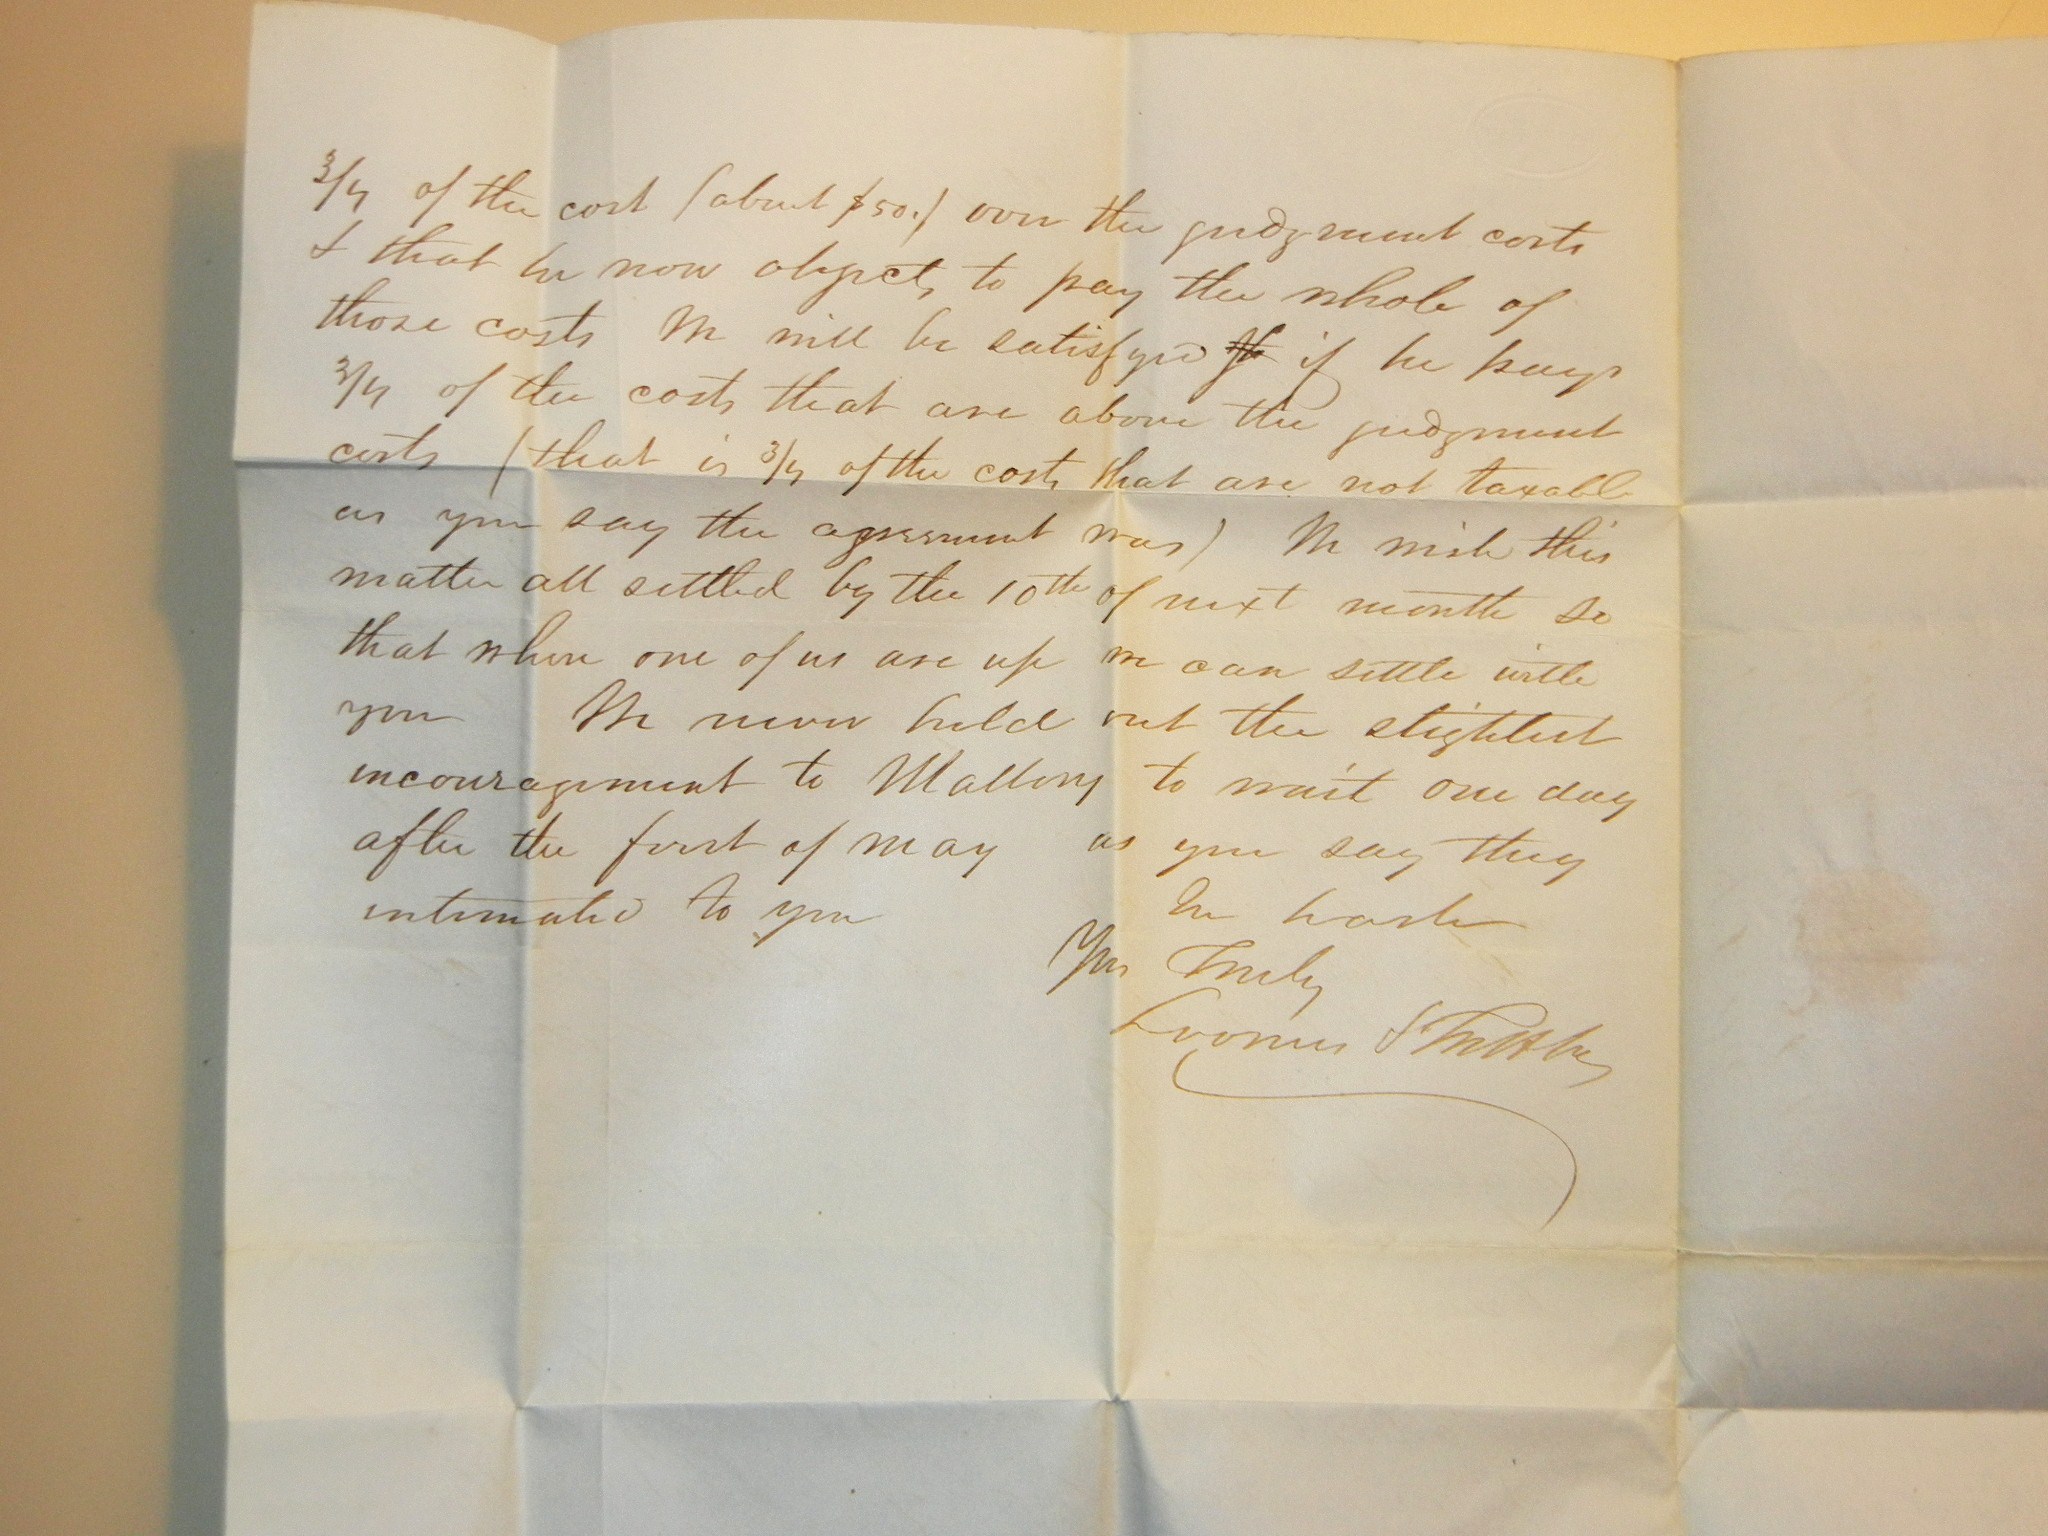 3/4 of the cost (about $50.) over the judgment costs
& that he now objects to pay the whole of
those costs We will be satisfyed if he pays
3/4 of the costs that are above the judgment
costs (that is 3/4 of the costs that are not taxable
as you say the agreement was) We wish this
matter all settled by the 10th of next month so
that when one of us are up we can settle with
you We never held out the slightest
encouragement to Mallory to wait one day
after the first of May as you say they
intimated to you In haste
Yrs Truly
Loomis &